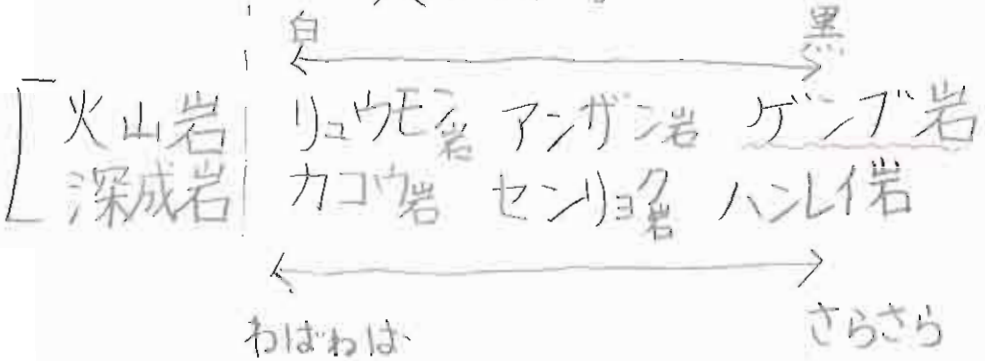 白 黒
火山岩 リュウモン岩 アンザン岩 ゲンブ岩
深成岩 カコウ岩 センリョク岩 ハンレイ岩
ねばねば さらさら